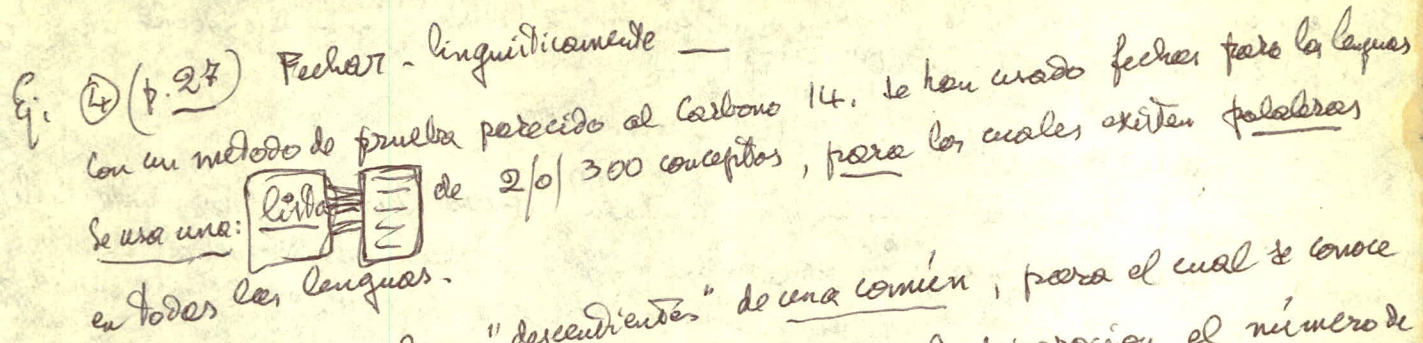 Ej: ④ (p. 27) Fechar - linguísticamente —
Con un metodo de prueba parecido al Carbono 14. Se han usado fechas para las lenguas
Se usa una: lista de 2/o/ 300 conceptos, para los cuales existen palabras
en todas las lenguas.
"descendientes" de una común, para el cual se conoce
el número de